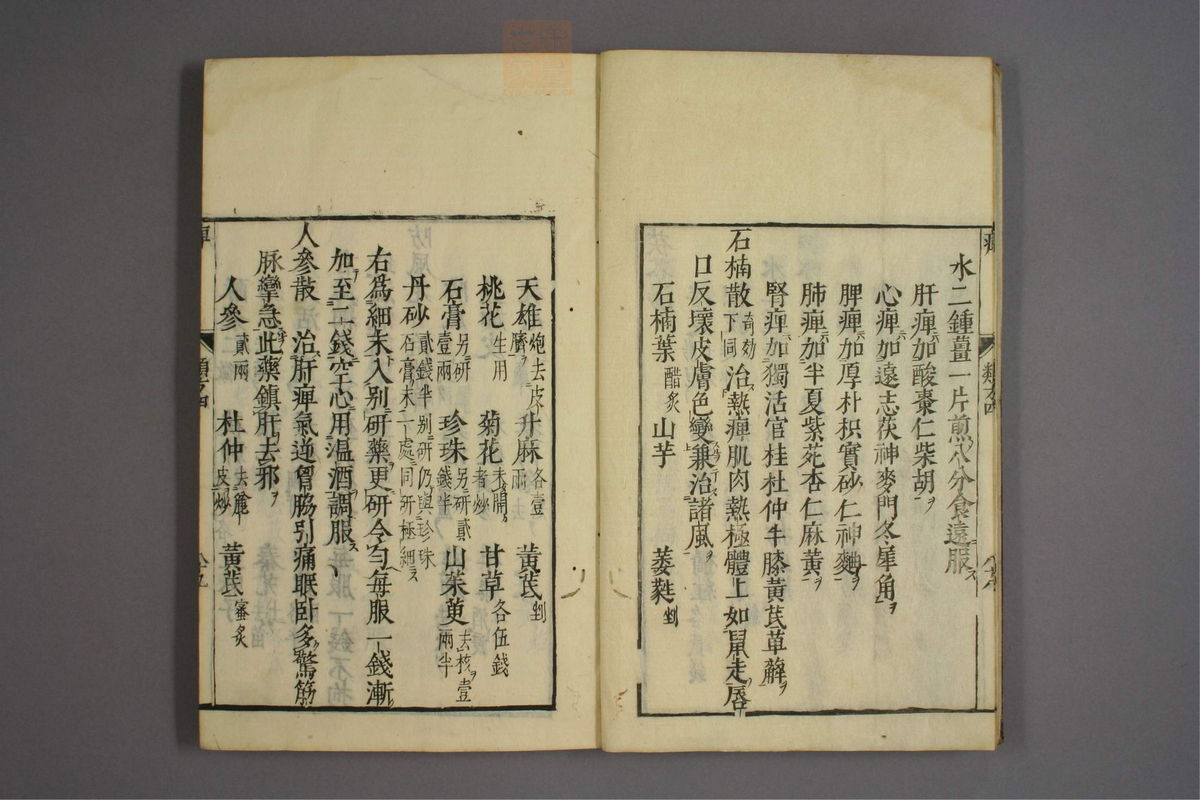 水二鍾薑一片煎八分食遠服
肝痺加酸棗仁柴胡
心痺加遠志茯神麥門冬犀角
脾痺加厚朴枳實砂仁神麯
肺痺加半夏紫菀杏仁麻黃
腎痺加獨活官桂杜仲牛膝黃芪萆薢
石楠散奇効下同治熱痺肌肉熱極體上如鼠走唇
口反壞皮膚色變兼治諸風
石楠葉醋炙 山芋 萎蕤剉
天雄炮去皮臍 升麻各壹兩 黃芪剉
桃花生用 菊花未開者炒 甘草各伍錢
石膏另研壹兩 珍珠另研貳錢半 山茱萸去核壹兩半
丹砂貳錢半別研仍與珍珠石膏末一處同研極細
右爲細末入別研藥更研令勻每服一錢漸
加至二錢空心用溫酒調服
人參散 治肝痺氣逆胷脇引痛眠卧多驚筋
脉攣急此藥鎮肝去邪
人參貳兩 杜仲去麄皮炒 黃芪蜜炙